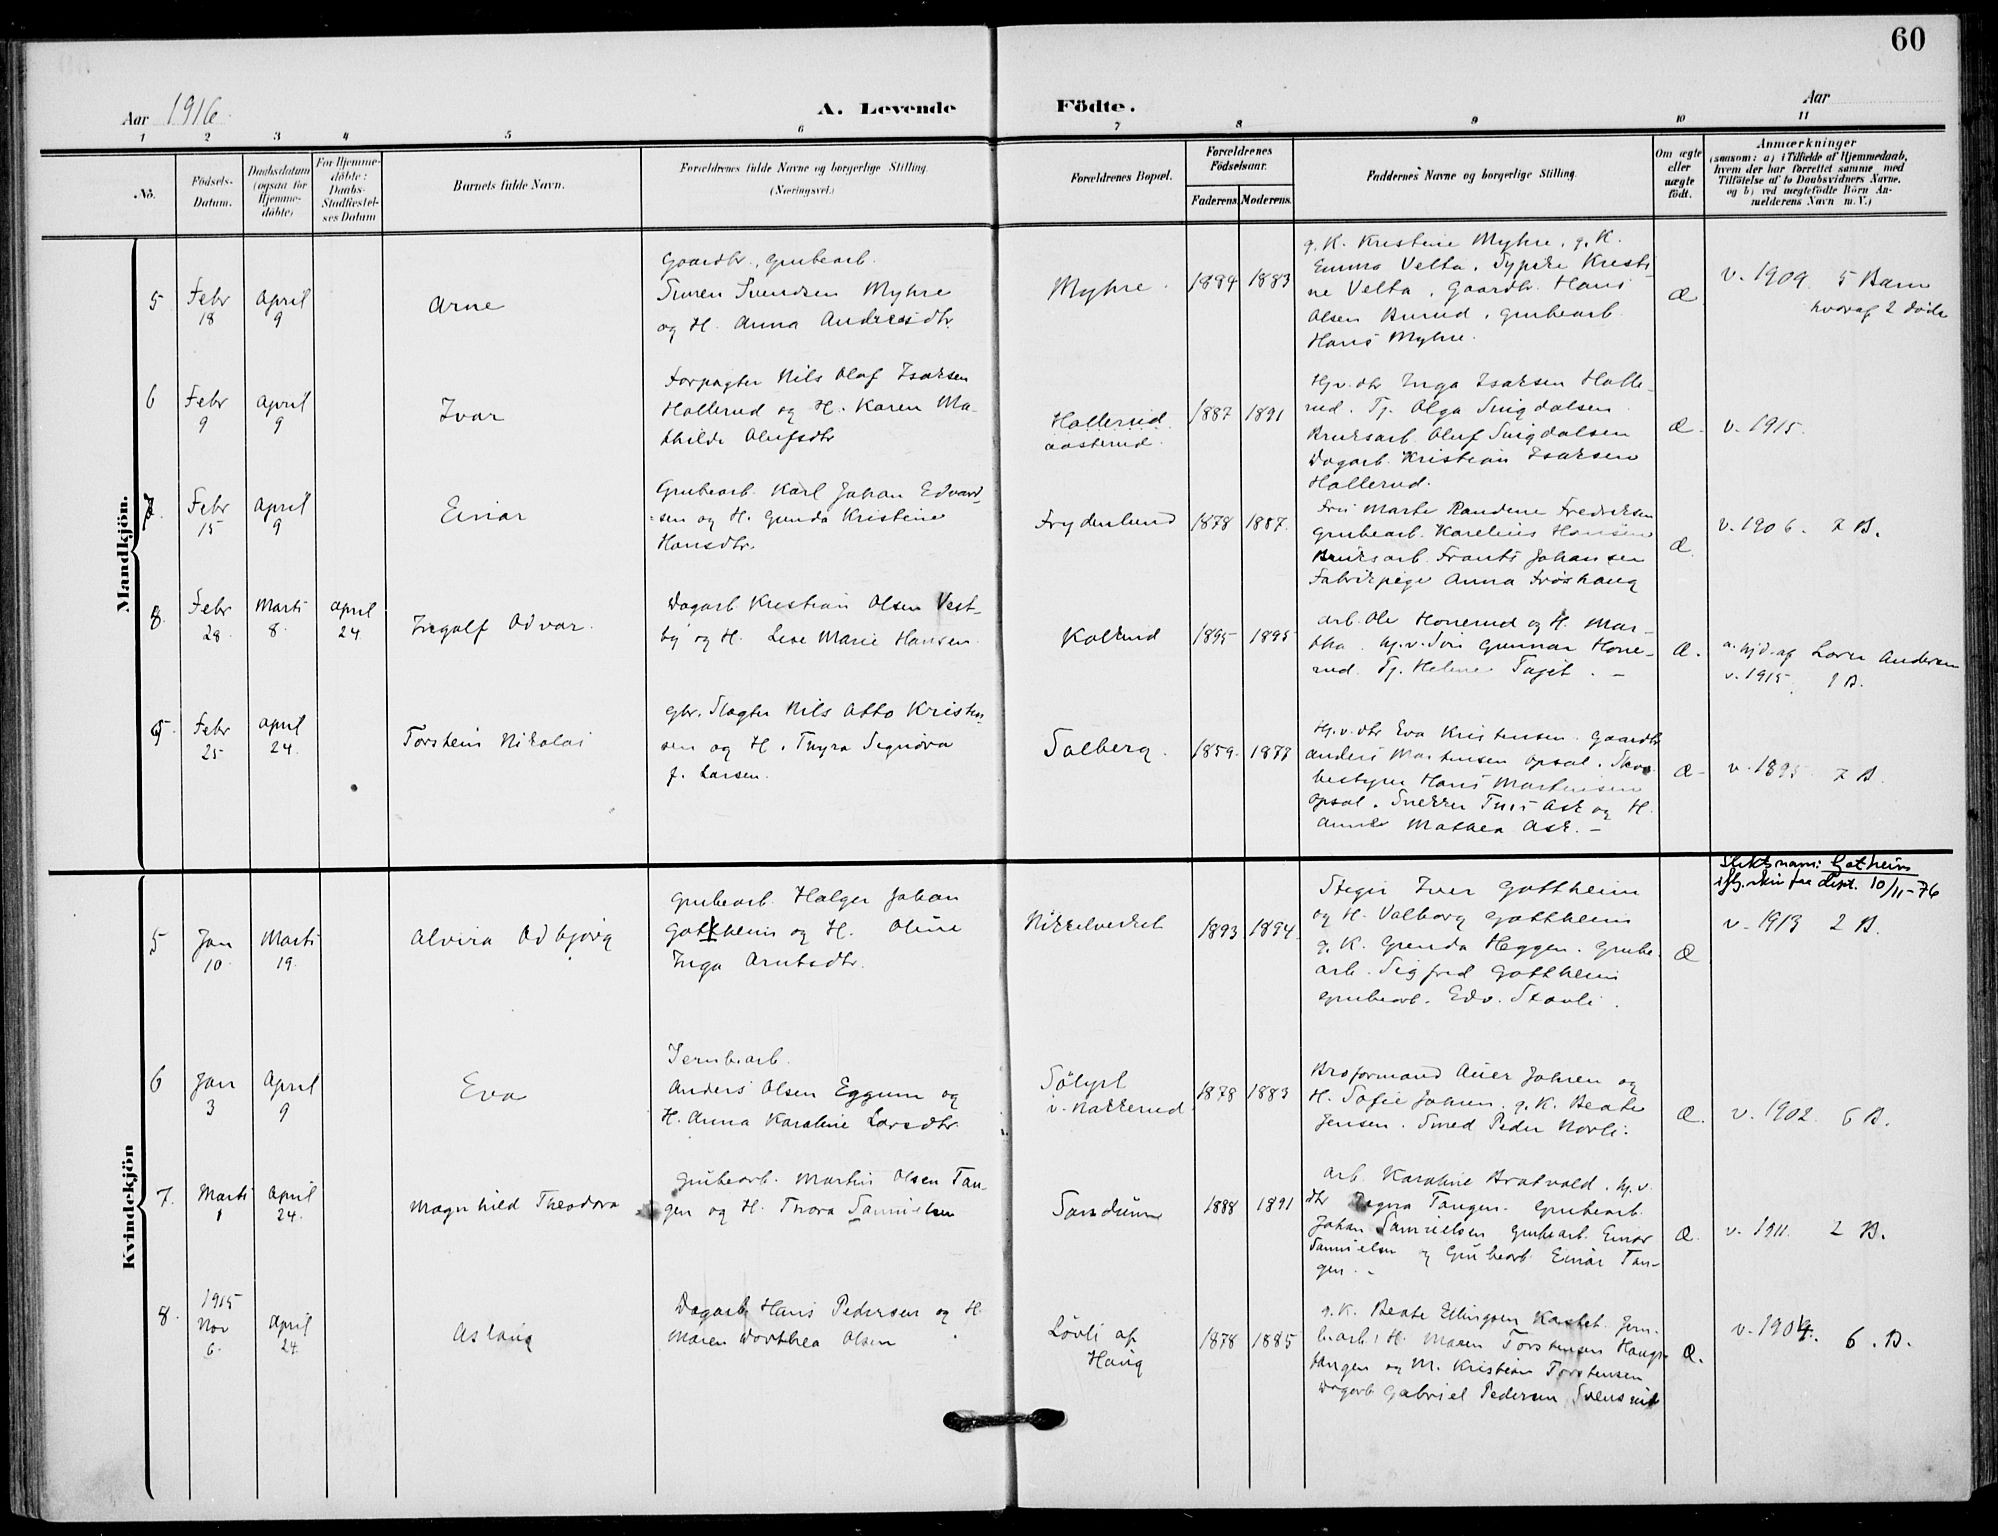 60
Aar 1916.
A. Levende
Födte.
Aar
1 2 3 4 5 6 7 8 9 10 11
No.
Födsels-
Datum.
Daabsdatum
(ogsaa for
Hjemme-
döbte)
For Hjemme-
döbte:
Daabs-
Stadfæstel-
ses Datum
Barnets fulde Navn.
Forældrenes fulde Navne og borgerlige Stilling.
(Næringsvei.)
Forældrenes Bopæl.
Forældrenes
Födselsaar.
Faderens. Moderens.
Faddernes Navne og borgerlige Stilling.
Om ægte
eller
uægte
födt.
Anmærkninger
(saasom: a) i Tilfælde af Hjemmedaab,
hvem der har forrettet samme med
Tilföielse af to Daabsvidners Navne,
og b) ved uægtefödte Börn An-
melderens Navn m. V.)
Mandkjön.
5
Febr
18
April
9
Arne
Gaardbr., grubearb.
Simen Svendsen Myhre
og H. Anna Andreasdtr.
Myhre.
1894 1883
g. K. Kristine Myhre, g. K.
Emma Velta, Sypike Kristi-
ne Velta, Gaardb. Hans
Olsen Burud, grubearb.
Hans Myhre.
Æ
v. 1909. 5 Barn
hvoraf 2 döde
6
Febr
9
April
9
Ivar
Forpagter Nils Olaf Isaksen
Hollerud og H. Karen Ma-
thilde Olufsdtr
Hollerud
Aasterud.
1887 1891
Hj.v. dtr Inga Isaksen Holle-
rud. Tj. Olga Smigdalsen
Bruksarb. Oluf Smigdalsen
Dagarb. Kristian Isaksen
Hollerud.
Æ.
v. 1915.
7.
Febr
15
April
9
Einar
Grubearb. Karl Johan Edvard-
sen og H. Gunda Kristine
Hansdtr.
Frydenlund
1878 1887.
Fru Marte Randine Fredriksen
grubearb. Karelius Hansen
Bruksarb. Frants Johansen
Fabrikpige Anna Fröshaug
Æ.
v. 1906. 7 B.
8.
Febr
28.
Marts
8.
April
24
Ingolf Odvar.
Dagarb Kristian Olsen Vest-
by og H. Lise Marie Hansen
Kolkind
1895 1895
Arb. Ole Honerud og H. Mar-
tha. hj.v. Sön Gunnar Hone-
rud. Tj. Helene Tajet. –
Æ.
a. hjd. af Lovn Andersen
v. 1915. 1 B.
9.
Febr
25
April
24.
Torstein Nikolai
gbr. Slagter Nils Otto Kristen-
sen og H. Thyra Signora
f. Larsen.
Solberg.
1859. 1877
Hj.v. dtr Eva Kristensen. Gaardbr
Anders Martinsen Opsal. Skov
bestyrer Hans Martinsen
Opsal. Snekker Ask og H.
Anne Mathea Ask. –
Æ
v. 1895. 7 B.
Kvindekjön
5
Jan
10.
Marts
19.
Alvira Odbjörg
Grubearb. Holger Johan
Gottheim og H. Oline
Inga Arntsdtr.
Nikkelverket
1893 1894.
Steger Iver Gottheim
og H. Valborg Gottheim
g. K. Gunda Heggen. Grube-
arb. Sigfred Gottheim
grubearb. Edv. Stovli.
Æ
Slektsnavn: Gotheim
iflg. skriv fra dept. 10/11-76
v. 1913 2 B.
6
Jan
3
April
9
Eva
Jernbearb.
Anders Olsen Eggum og
H. Anna Karoline Larsdtr.
Sölyst
v. Nakkerud
1878 1883
Broformand Auer Johren og
H. Sofie Johren, g. K. Beate
Jensen. Smed Peder Norli.
Æ.
v. 1902. 6 B.
7.
Marts
1
April
24.
Magnhild Theodora
Grubearb. Martin Olsen Tan-
gen og H. Thora Samuelsen
Sandum
1888 1891
Arb. Karoline Bratvold. hj.v.
dtr Dagna Tangen. Grubearb.
Johan Samuelsen Grubearb. Einar
Samuelsen og Grubearb Einar Tan-
gen. –
Æ.
v. 1911. 2 B.
8.
1915
Nov
6.
April
24.
Aslaug
Dagarb Hans Pedersen og H
Maren Dorthea Olsen
Lövli af
Haug
1878 1885
g. K. Beate Ellingsen Kastet. Jern-
bearb: H. Maren Torstensen Haugs-
tangen og M. Kristian Torstensen
Dagarb Gabriel Pedersen Svensrud
Æ.
v. 1904. 6. B.